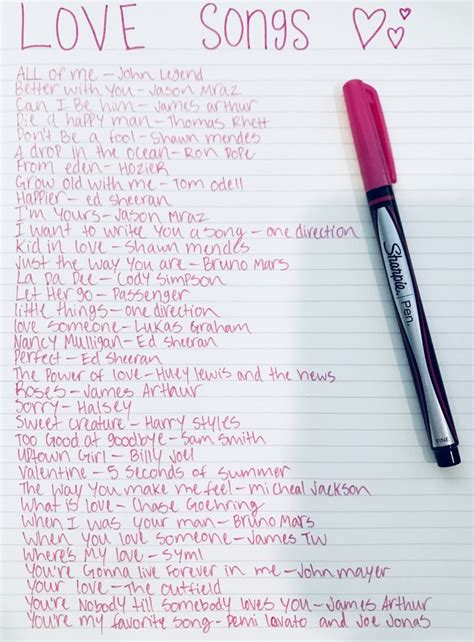 LOVE Songs
ALL OF me - John Legend
Better with you - Jason Mraz
Can I Be him - James Arthur
Die a happy man - Thomas Rhett
Don't Be a fool - Shawn mendes
A drop in the ocean - Ron Pope
From eden - Hozier
Grow old with me - Tom odell
Happier - ed sheeran
I'm yours - Jason Mraz
I want to write you a song - one direction
Kid in love - Shawn mendes
Just the way you are - Bruno Mars
La Da Dee - Cody Simpson
Let Her go - Passenger
little things - one direction
love someone - Lukas Graham
Nancy Mulligan - Ed Sheeran
Perfect - Ed Sheeran
The Power of love - Huey lewis and the news
Roses - James Arthur
Sorry - Halsey
Sweet creature - Harry Styles
Too Good at goodbye - Sam Smith
Uptown Girl - Billy Joel
Valentine - 5 seconds of summer
The way you make me feel - micheal Jackson
What is love - Chase Goehring
When I was your man - Bruno Mars
When you love someone - James TW
Where's My love - Syml
You're Gonna live Forever in me - John mayer
Your love - The outfield
You're Nobody till somebody loves you - James Arthur
You're my favorite song - Demi lovato and Joe Jonas
Sharpie Pen